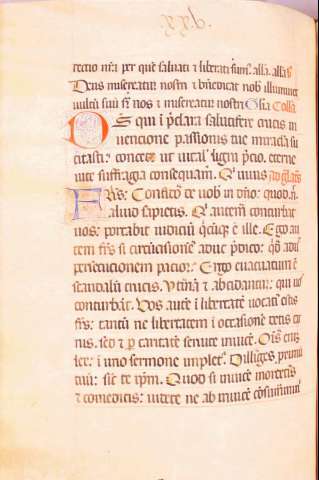 rectio nr̄a per quē saluati ⁊ liberati sum9. alla. alla. p̄s
Deus misereatur nostri ⁊ bn̄dicat nob illuminet
uultū suū sr̄ nos ⁊ misereatur nostri. Gl̄ia Colla.
DS qui ī p̄clara salutifere crucis in
uencione passionis tue miracla su
citasti: concede ut uital' ligni p̄cio. eterne
uite suffragia consequam̄. Q' uiuis ad galat̄.
FR̄s: Confido de uob in dn̄o: quod n̄
aliud sapietis. Q' autem conturbat
uos: portabit iudiciū q̄cūq̄ ē ille. Ego au
tem fr̄s si circūcisionē adhuc p̄dico: q̄d adhuc
persecucionem pacior. Ergo euacuatum ē
scandalū crucis. Utinā ⁊ abscidantur: qui uos
conturbāt. Vos autē ī libertatē uocati estis
fr̄s: tantū ne libertatem ī occasionē detis car
nis. sed p̄ caritatē seruite inuicē. Om̄is
lex ī uno sermone implet̄. Diliges primū
tuū: sic̄ te ip̄m. Quod si inuicē mordetis
⁊ comeditis: uidete ne ab inuicē cōsumimini